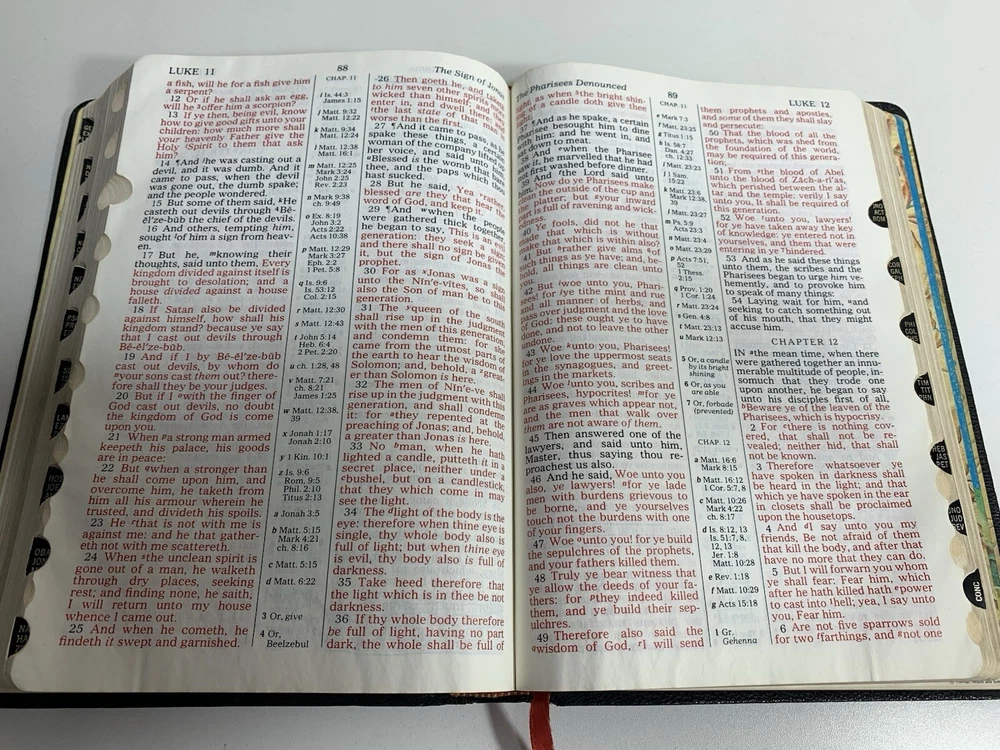 LUKE 11
88
The Sign of Jonas
a fish, will he for a fish give him
a serpent?
12 Or if he shall ask an egg,
will he ³offer him a scorpion?
13 If ye then, being evil, know
how to give good gifts unto your
children: how much more shall
your heavenly Father give the
Holy Spirit to them that ask
him?
14 ¶And he was casting out a
devil, and it was dumb. And it
came to pass, when the devil
was gone out, the dumb spake;
and the people wondered.
15 But some of them said, He
casteth out devils through ⁴Bē-
ĕl'ze-bŭb the chief of the devils.
16 And others, tempting him,
sought of him a sign from heav-
en.
17 But he, knowing their
thoughts, said unto them, Every
kingdom divided against itself is
brought to desolation; and a
house divided against a house
falleth.
18 If Satan also be divided
against himself, how shall his
kingdom stand? because ye say
that I cast out devils through
Bē-ĕl'ze-bŭb.
19 And if I by Bē-ĕl'ze-bŭb
cast out devils, by whom do
your sons cast them out? there-
fore shall they be your judges.
20 But if I with the finger of
God cast out devils, no doubt
the kingdom of God is come
upon you.
21 When a strong man armed
keepeth his palace, his goods
are in peace:
22 But when a stronger than
he shall come upon him, and
overcome him, he taketh from
him all his armour wherein he
trusted, and divideth his spoils.
23 He that is not with me is
against me: and he that gather-
eth not with me scattereth.
24 When the unclean spirit is
gone out of a man, he walketh
through dry places, seeking
rest; and finding none, he saith,
I will return unto my house
whence I came out.
25 And when he cometh, he
findeth it swept and garnished.
CHAP. 11
i Is. 44:3
James 1:15
j Matt. 9:32
Matt. 12:22
k Matt. 9:34
Matt. 12:24
l Matt. 12:38
Matt. 16:1
m Matt. 12:25
Mark 3:24
John 2:25
Rev. 2:23
n Mark 9:38
ch. 9:49
o Ex. 8:19
John 3:2
Acts 2:22
Acts 10:38
p Matt. 12:29
Mark 3:27
Eph. 2:2
1 Pet. 5:8
q Is. 9:6
Is. 53:12
Col. 2:15
r Matt. 12:30
s Matt. 12:43
t John 5:14
Heb. 6:4
2 Pet. 2:20
u ch. 1:28, 48
v Matt. 7:21
ch. 8:21
James 1:25
w Matt. 12:38,
39
x Jonah 1:17
Jonah 2:10
y 1 Kin. 10:1
z Is. 9:6
Rom. 9:5
Phil. 2:10
Titus 2:13
a Jonah 3:5
b Matt. 5:15
Mark 4:21
ch. 8:16
c Matt. 5:15
d Matt. 6:22
3 Or, give
4 Or,
Beelzebul
26 Then goeth he, and taketh
to him seven other spirits more
wicked than himself; and they
enter in, and dwell there: and
the last state of that man is
worse than the first.
27 ¶And it came to pass, as he
spake these things, a certain
woman of the company lifted up
her voice, and said unto him,
Blessed is the womb that bare
thee, and the paps which thou
hast sucked.
28 But he said, Yea rather,
blessed are they that hear the
word of God, and keep it.
29 ¶And when the people
were gathered thick together,
he began to say, This is an evil
generation: they seek a sign;
and there shall no sign be given
it, but the sign of Jonas the
prophet.
30 For as Jonas was a sign
unto the Nĭn'e-vītes, so shall
also the Son of man be to this
generation.
31 The queen of the south
shall rise up in the judgment
with the men of this generation,
and condemn them: for she
came from the utmost parts of
the earth to hear the wisdom of
Solomon; and, behold, a great-
er than Solomon is here.
32 The men of Nĭn'e-ve shall
rise up in the judgment with this
generation, and shall condemn
it: for they repented at the
preaching of Jonas; and, behold,
a greater than Jonas is here.
33 No man, when he hath
lighted a candle, putteth it in a
secret place, neither under a
bushel, but on a candlestick,
that they which come in may
see the light.
34 The light of the body is the
eye: therefore when thine eye is
single, thy whole body also is
full of light; but when thine eye
is evil, thy body also is full of
darkness.
35 Take heed therefore that
the light which is in thee be not
darkness.
36 If thy whole body therefore
be full of light, having no part
dark, the whole shall be full of
The Pharisees Denounced
89
LUKE 12
light, as when the bright shin-
ing of a candle doth give thee
light.
37 ¶And as he spake, a certain
Pharisee besought him to dine
with him: and he went in, and
sat down to meat.
38 And when the Pharisee
saw it, he marvelled that he had
not first washed before dinner.
39 And the Lord said unto
him, Now do ye Pharisees make
clean the outside of the cup and
the platter; but your inward
part is full of ravening and wick-
edness.
40 Ye fools, did not he that
made that which is without
make that which is within also?
41 But rather give alms of
such things as ye have; and, be-
hold, all things are clean unto
you.
42 But woe unto you, Phari-
sees! for ye tithe mint and rue
and all manner of herbs, and
pass over judgment and the love
of God: these ought ye to have
done, and not to leave the other
undone.
43 Woe unto you, Pharisees!
for ye love the uppermost seats
in the synagogues, and greet-
ings in the markets.
44 Woe unto you, scribes and
Pharisees, hypocrites! for ye
are as graves which appear not,
and the men that walk over
them are not aware of them.
45 Then answered one of the
lawyers, and said unto him,
Master, thus saying thou re-
proachest us also.
46 And he said, Woe unto you
also, ye lawyers! for ye lade
men with burdens grievous to
be borne, and ye yourselves
touch not the burdens with one
of your fingers.
47 Woe unto you! for ye build
the sepulchres of the prophets,
and your fathers killed them.
48 Truly ye bear witness that
ye allow the deeds of your fa-
thers: for they indeed killed
them, and ye build their sep-
ulchres.
49 Therefore also said the
wisdom of God, I will send
CHAP. 11
e Mark 7:3
f Matt. 23:25
Titus 1:15
h Is. 58:7
Dan. 4:27
ch. 12:33
i Matt. 23:23
j 1 Sam.
15:22
k Matt. 23:6
Mark 12:38,
39
l Matt. 23:27
m Ps. 5:9
Acts 23:3
n Matt. 23:4
o Matt. 23:29
p Acts 7:51,
52
1 Thess.
2:15
q Prov. 1:20
1 Cor. 1:24
r Matt. 23:24
s Gen. 4:8
t Matt. 23:13
u Mark 12:13
5 Or, a candle
by its bright
shining
6 Or, as you
are able
7 Or, forbade
(prevented)
CHAP. 12
a Matt. 16:6
Mark 8:15
b Matt. 16:12
1 Cor. 5:7, 8
c Matt. 10:26
Mark 4:22
ch. 8:17
d Is. 8:12, 13
Is. 51:7, 8,
12, 13
Jer. 1:8
Matt. 10:28
e Rev. 1:18
f Matt. 10:29
g Acts 15:18
1 Gr.
Gehenna
them prophets and apostles,
and some of them they shall slay
and persecute:
50 That the blood of all the
prophets, which was shed from
the foundation of the world,
may be required of this genera-
tion;
51 From the blood of Abel
unto the blood of Zăch-a-rī'as,
which perished between the al-
tar and the temple: verily I say
unto you, It shall be required of
this generation.
52 Woe unto you, lawyers!
for ye have taken away the key
of knowledge: ye entered not in
yourselves, and them that were
entering in ye ⁷hindered.
53 And as he said these things
unto them, the scribes and the
Pharisees began to urge him ve-
hemently, and to provoke him
to speak of many things:
54 Laying wait for him, and
seeking to catch something out
of his mouth, that they might
accuse him.
CHAPTER 12
IN the mean time, when there
were gathered together an innu-
merable multitude of people, in-
somuch that they trode one
upon another, he began to say
unto his disciples first of all,
Beware ye of the leaven of the
Pharisees, which is hypocrisy.
2 For there is nothing cov-
ered, that shall not be re-
vealed; neither hid, that shall
not be known.
3 Therefore whatsoever ye
have spoken in darkness shall
be heard in the light; and that
which ye have spoken in the ear
in closets shall be proclaimed
upon the housetops.
4 And I say unto you my
friends, Be not afraid of them
that kill the body, and after that
have no more that they can do.
5 But I will forewarn you whom
ye shall fear: Fear him, which
after he hath killed hath power
to cast into ¹hell; yea, I say unto
you, Fear him.
6 Are not five sparrows sold
for two farthings, and not one
JNO
ACT
ROM
COR
GAL
PHI
COL
TIM
TIT
PHN
HEB
JAS
PET
JNO
JUD
REV
CONC